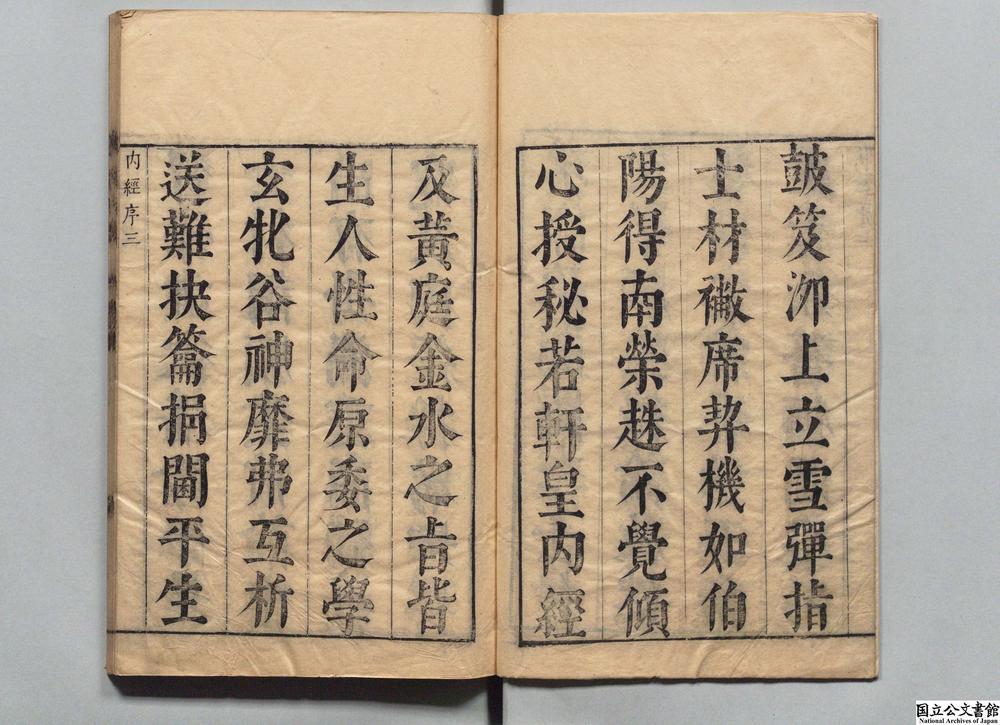 鼓笈泖上立雪彈指
士材襒席契機如伯
陽得南榮趎不覺傾
心授秘若軒皇內經
及黃庭金水之旨皆
生人性命原委之學
玄牝谷神靡弗互析
送難抉籥捐閫平生
內經序三
国立公文書館
National Archives of Japan